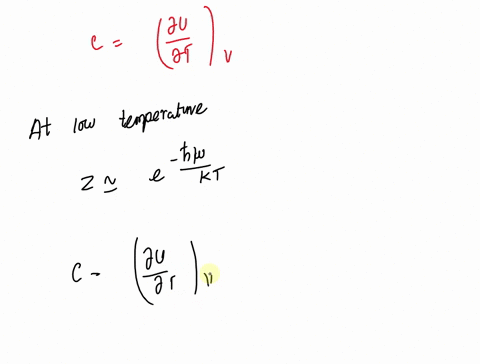 C = (∂U/∂T)_V
At low temperature
Z ≃ e^{-ħω/KT}
C - (∂U/∂T)